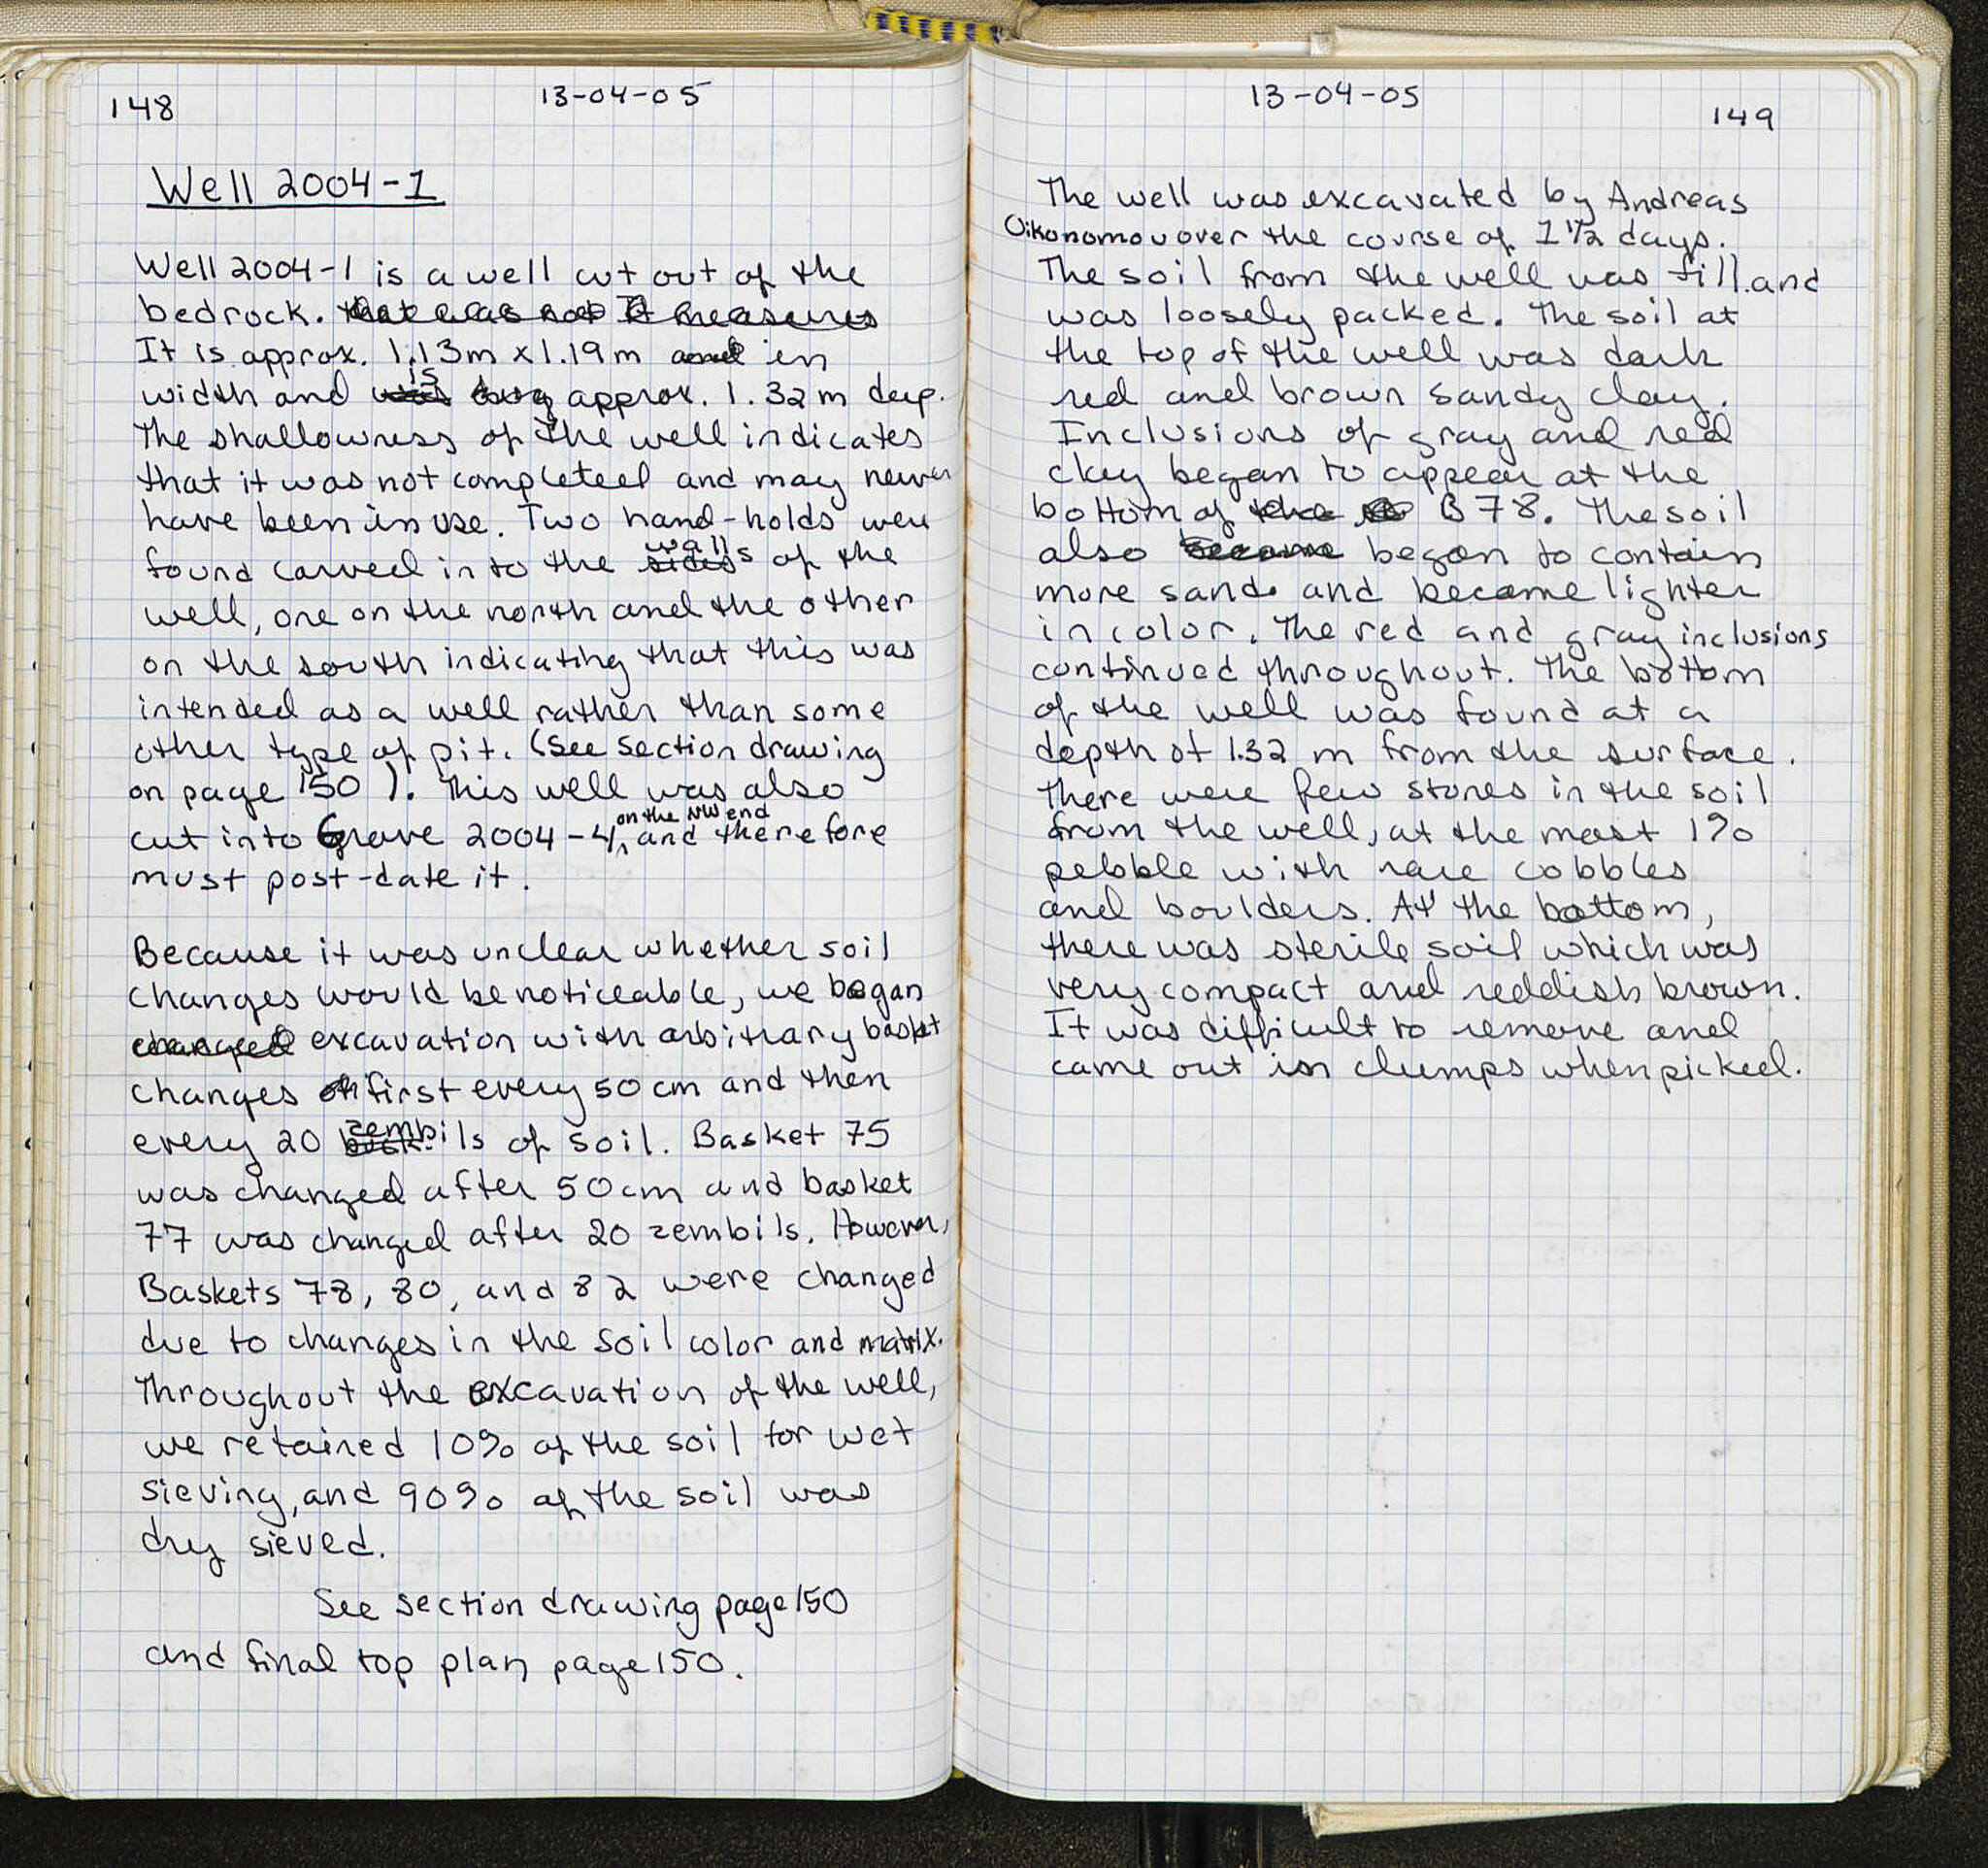 148
13-04-05
Well 2004-1
Well 2004-1 is a well cut out of the
bedrock. that was not It measures
It is approx. 1.13m x 1.19m and in
width and was is dug approx. 1.32m deep.
The shallowness of the well indicates
that it was not completed and may never
have been in use. Two hand-holds were
found carved into the sides walls of the
well, one on the north and the other
on the south indicating that this was
intended as a well rather than some
other type of pit. (See section drawing
on page 150). This well was also
cut into Grave 2004-4, on the NW end and therefore
must post-date it.
Because it was unclear whether soil
changes would be noticeable, we began
changed excavation with arbitrary basket
changes first every 50 cm and then
every 20 bask zembils of soil. Basket 75
was changed after 50cm and basket
77 was changed after 20 zembils. However,
Baskets 78, 80, and 82 were changed
due to changes in the soil color and matrix.
Throughout the excavation of the well,
we retained 10% of the soil for wet
sieving, and 90% of the soil was
dry sieved.
See section drawing page 150
and final top plan page 150.
13-04-05
149
The well was excavated by Andreas
Oikonomou over the course of 1 1/2 days.
The soil from the well was fill and
was loosely packed. The soil at
the top of the well was dark
red and brown sandy clay.
Inclusions of gray and red
clay began to appear at the
bottom of the B78. The soil
also became began to contain
more sand and became lighter
in color. The red and gray inclusions
continued throughout. The bottom
of the well was found at a
depth of 1.32 m from the surface.
There were few stones in the soil
from the well, at the most 1%
pebble with rare cobbles
and boulders. At the bottom,
there was sterile soil which was
very compact and reddish brown.
It was difficult to remove and
came out in clumps when picked.